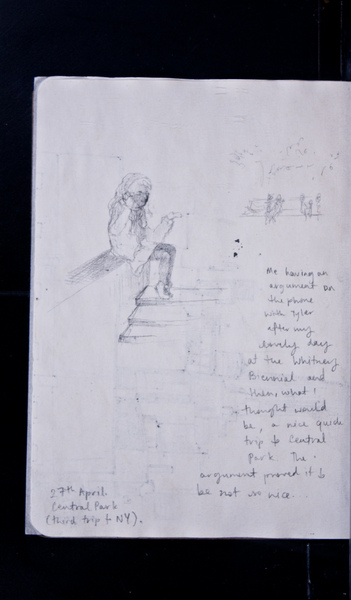 Me having an
argument on
the phone
with Tyler
after my
lovely day
at the Whitney
Biennial and
then, what I
thought would
be, a nice quick
trip to Central
Park. The
argument proved it to
be not so nice...
27th April.
Central Park
(third trip to NY).